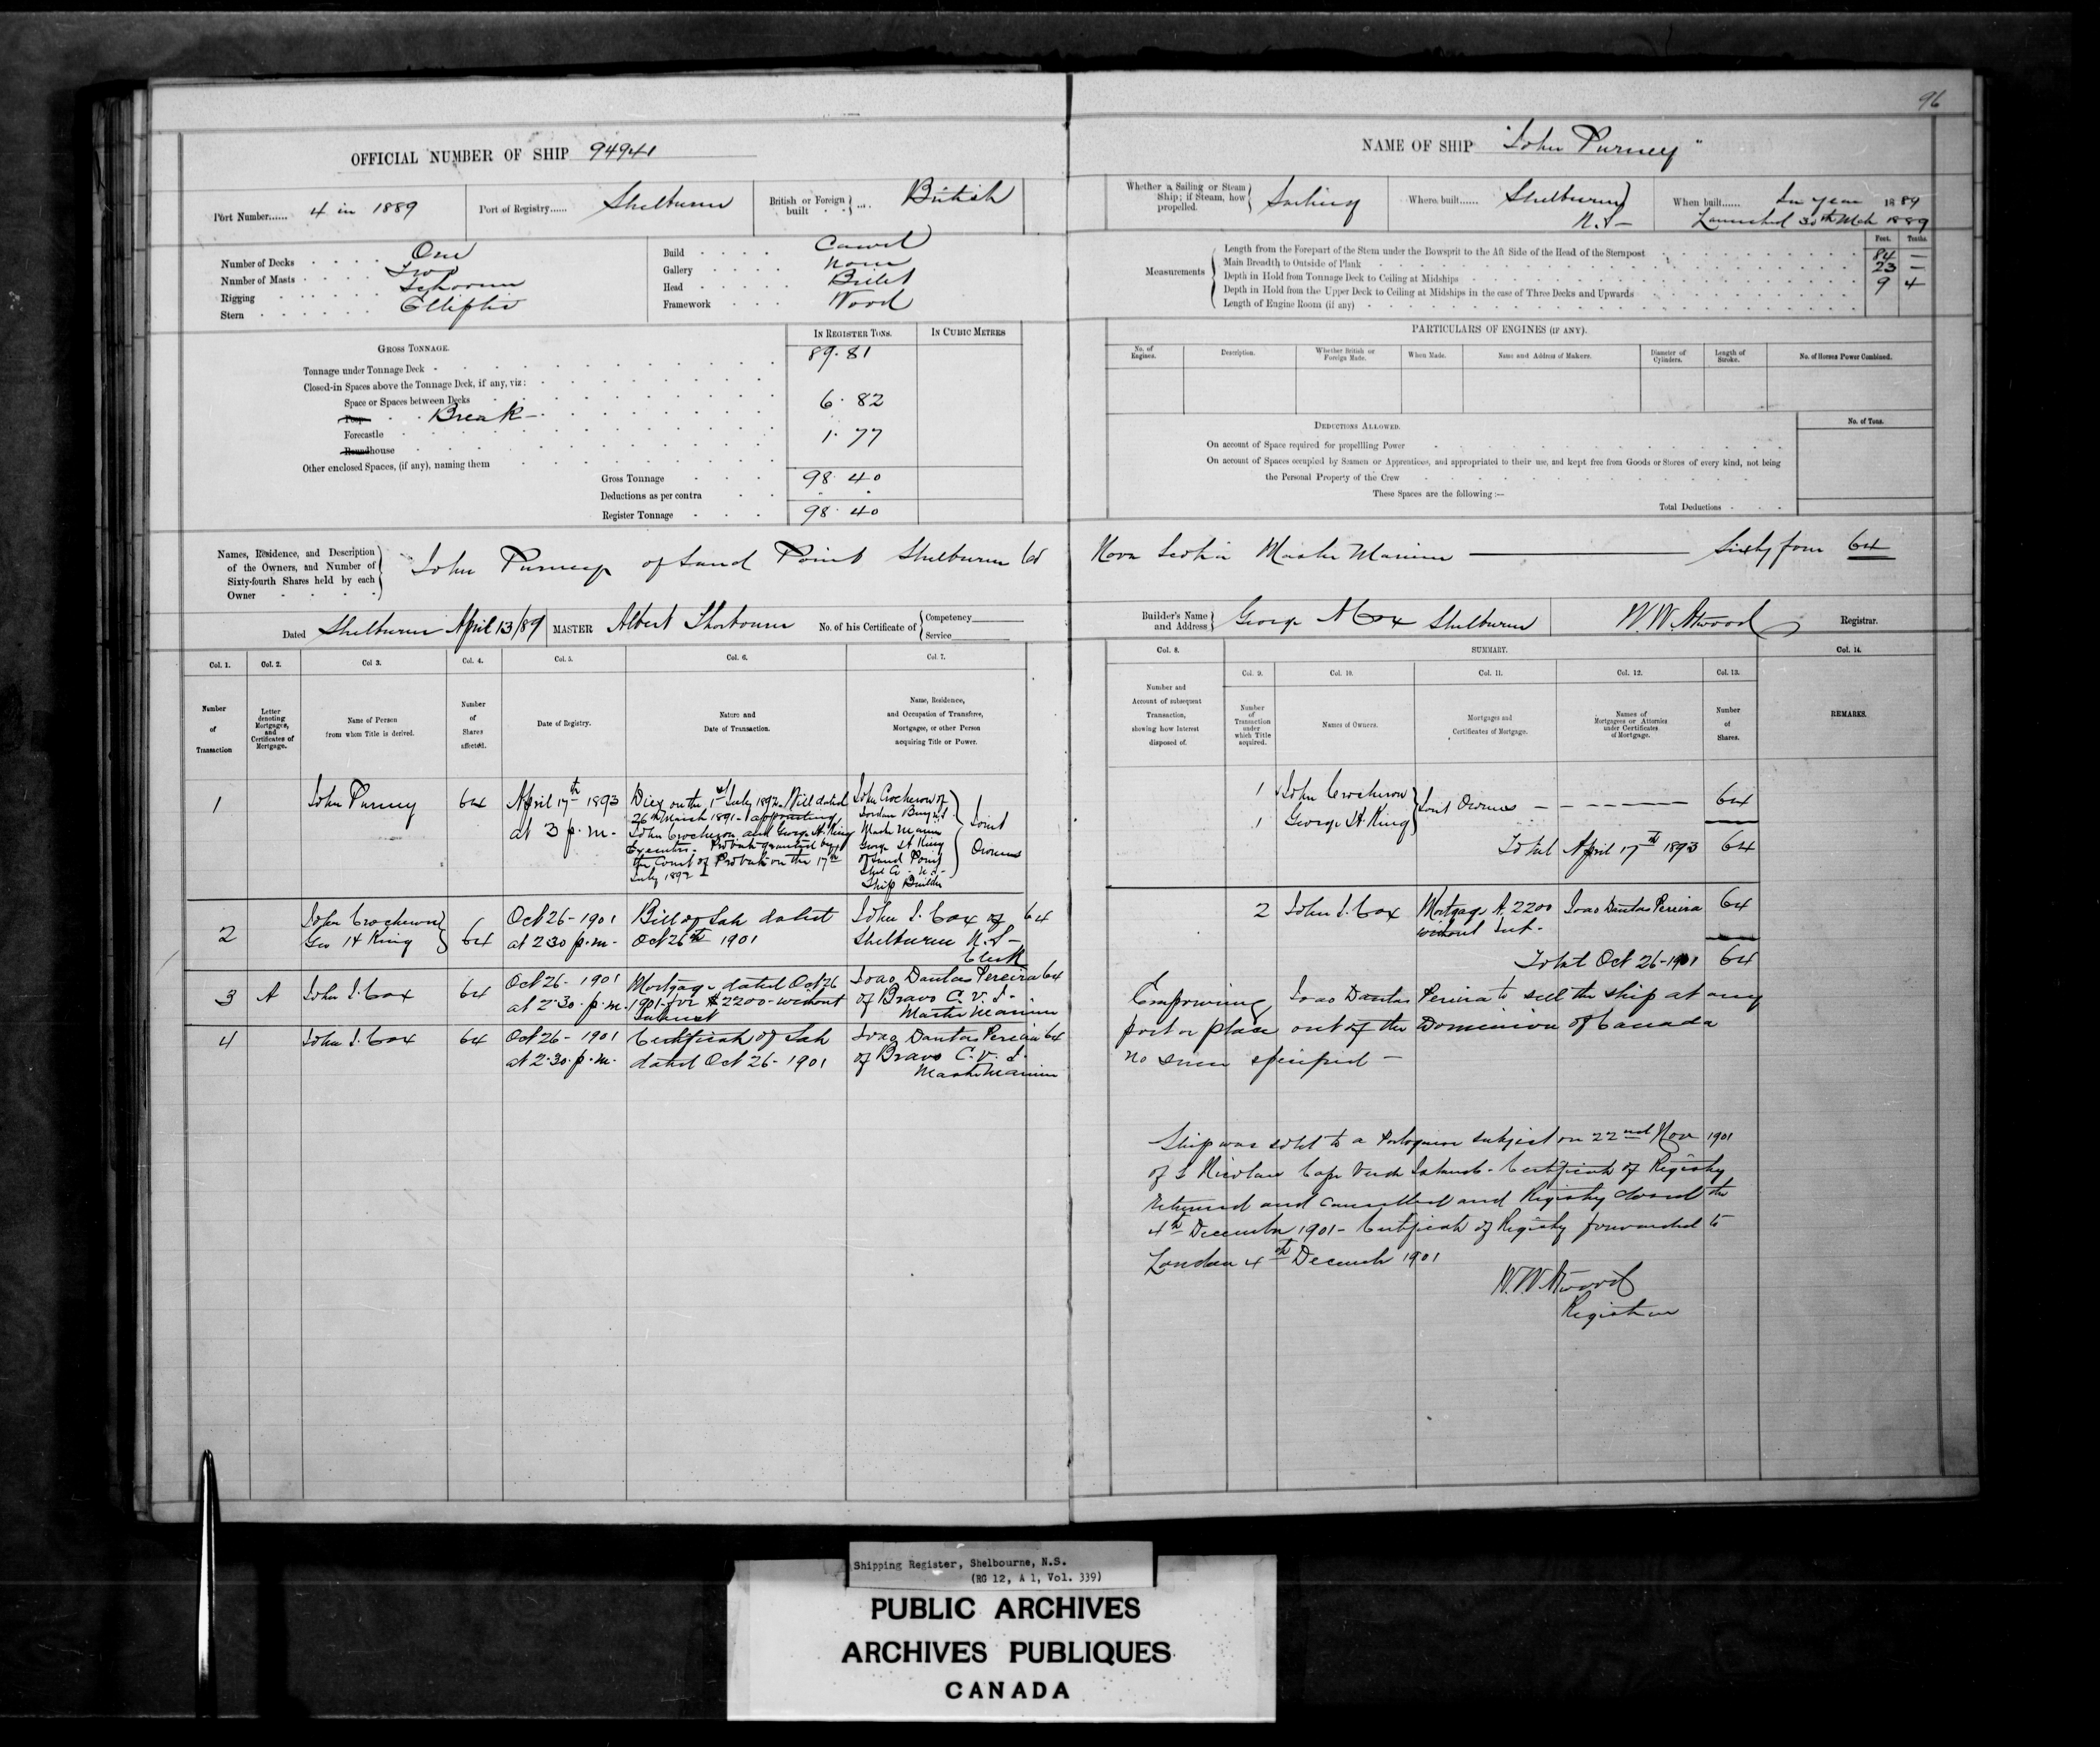 96
OFFICIAL NUMBER OF SHIP 94941
NAME OF SHIP "John Purney"
Port Number...... 4 in 1889
Port of Registry...... Shelburne
British or Foreign built .... British
Whether a Sailing or Steam Ship; if Steam, how propelled. Sailing
Where built...... Shelburne N.S—
When built...... In year 1889
Launched 30th Mch 1889
Number of Decks One
Number of Masts Two
Rigging Schooner
Stern Elliptic
Build Carvel
Gallery None
Head Billet
Framework Wood
Measurements
Feet. Tenths.
Length from the Forepart of the Stem under the Bowsprit to the Aft Side of the Head of the Sternpost 84 —
Main Breadth to Outside of Plank 23 —
Depth in Hold from Tonnage Deck to Ceiling at Midships 9 4
Depth in Hold from the Upper Deck to Ceiling at Midships in the case of Three Decks and Upwards
Length of Engine Room (if any)
GROSS TONNAGE.
IN REGISTER TONS.
IN CUBIC METRES
Tonnage under Tonnage Deck 89.81
Closed-in Spaces above the Tonnage Deck, if any, viz:
Space or Spaces between Decks
Poop Break — 6.82
Forecastle 1.77
Roundhouse
Other enclosed Spaces, (if any), naming them
Gross Tonnage 98.40
Deductions as per contra
Register Tonnage 98.40
PARTICULARS OF ENGINES (IF ANY).
No. of Engines.
Description.
Whether British or Foreign Made.
When Made.
Name and Address of Makers.
Diameter of Cylinders.
Length of Stroke.
No. of Horses Power Combined.
DEDUCTIONS ALLOWED.
No. of Tons.
On account of Space required for propellling Power
On account of Spaces occupied by Seamen or Apprentices, and appropriated to their use, and kept free from Goods or Stores of every kind, not being
the Personal Property of the Crew
These Spaces are the following:—
Total Deductions
Names, Residence, and Description of the Owners, and Number of Sixty-fourth Shares held by each Owner
John Purney of Sand Point Shelburne Co Nova Scotia Master Mariner — Sixty four 64
Dated Shelburne April 13/89
MASTER Albert
No. of his Certificate of
Competency
Service
Builder's Name and Address George A Cox Shelburne
W.W. Atwood Registrar.
Col. 1.
Col. 2.
Col 3.
Col. 4.
Col. 5.
Col. 6.
Col. 7.
Number of Transaction
Letter denoting Mortgages, and Certificates of Mortgage.
Name of Person from whom Title is derived.
Number of Shares affected.
Date of Registry.
Nature and Date of Transaction.
Name, Residence, and Occupation of Transferee, Mortgagee, or other Person acquiring Title or Power.
Col. 8.
SUMMARY.
Col. 14.
Col. 9.
Col. 10.
Col. 11.
Col. 12.
Col. 13.
Number and Account of subsequent Transaction, showing how Interest disposed of.
Number of Transaction under which Title acquired.
Names of Owners.
Mortgages and Certificates of Mortgage.
Names of Mortgagees or Attornies under Certificates of Mortgage.
Number of Shares.
REMARKS.
1
John Purney
64
April 17th 1893
at 3 p.m.
Died on the 1st July 1892. Will dated
26th March 1891 - appointing
John Crocherow and George H. King
Executors. Probate granted by
the Court of Probate on the 17th
July 1892
John Crocherow of
Jordan Bay N.S
Master Mariner
George H King
of Sand Point
Shel Co - N.S -
Ship Builder
Joint
Owners
2
John Crocherow
Geo H King
64
Oct 26 - 1901
at 2 30 p.m.
Bill of Sale dated
Oct 26th 1901
John I. Cox of 64
Shelburne N.S —
Clerk
3
A
John I. Cox
64
Oct 26 - 1901
at 2.30. p.m.
Mortgage dated Oct 26
1901 - for $2200 - without
Interest
Joao Dantas Pereira 64
of Bravo C.V.I -
Master Mariner
4
John I. Cox
64
Oct 26 - 1901
at 2.30. p.m.
Certificate of Sale
dated Oct 26 - 1901
Joao Dantas Pereira 64
of Bravo C.V.I.
Master Mariner
1 John Crocherow
1 George H. King
Joint Owners — — — — 64
Total April 17th 1893 64
2 John I. Cox
Mortgage A. 2200
without Int.
Joao Dantas Pereira 64
Total Oct 26 - 1901 64
Empowering Joao Dantas Pereira to sell the ship at any
port or place out of the Dominion of Canada
no sum specified —
Ship was sold to a Portuguese subject on 22nd Nov 1901
of S Nicolau Cape Verde Islands - Certificate of Registry
returned and cancelled and Registry closed the
4th December 1901 - Certificate of Registry forwarded to
London 4th December 1901
W.W. Atwood
Registrar
Shipping Register, Shelbourne, N.S.
(RG 12, A 1, Vol. 339)
PUBLIC ARCHIVES
ARCHIVES PUBLIQUES
CANADA